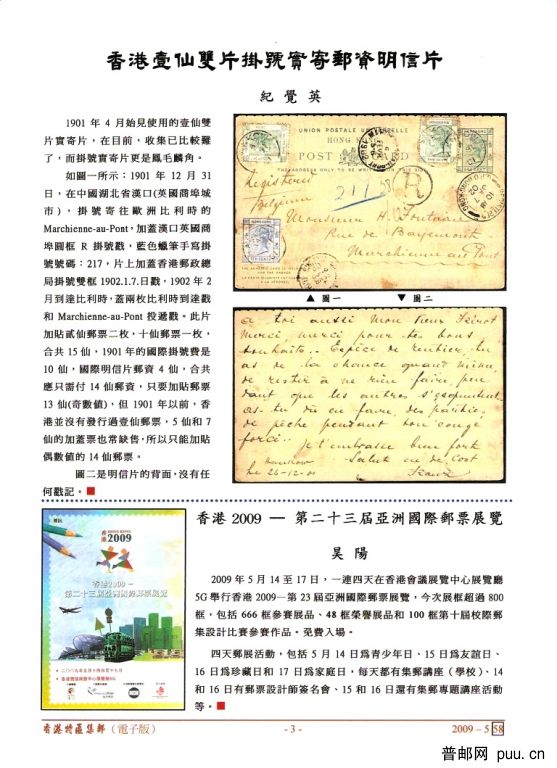 香港壹仙雙片掛號實寄郵資明信片
紀覺英
1901 年 4 月始見使用的壹仙雙
片實寄片，在目前，收集已比較難
了，而掛號實寄片更是鳳毛麟角。
如圖一所示：1901 年 12 月 31
日，在中國湖北省漢口(英國商埠城
市)，掛號寄往歐洲比利時的
Marchienne-au-Pont，加蓋漢口英國商
埠圓框 R 掛號戳，藍色蠟筆手寫掛
號號碼：217，片上加蓋香港郵政總
局掛號雙框 1902.1.7.日戳，1902 年 2
月到達比利時，蓋兩枚比利時到達戳
和 Marchienne-au-Pont 投遞戳。此片
加貼貳仙郵票二枚，十仙郵票一枚，
合共 15 仙，1901 年的國際掛號費是
10 仙，國際明信片郵資 4 仙，合共
應只需付 14 仙郵資，只要加貼郵票
13 仙(奇數值)，但 1901 年以前，香
港並沒有發行過壹仙郵票，5 仙和 7
仙的加蓋票也常缺售，所以只能加貼
偶數值的 14 仙郵票。
圖二是明信片的背面，沒有任
何戳記。
UNION POSTALE UNIVERSELLE
HONG KONG
POST
Registered
Belgique
217
R
Monsieur H. Fontaine
Rue de Bayemont
Marchienne au Pont
▲ 圖一 ▼ 圖二
à toi aussi mon vieux
Merci, merci pour tes bons
souhaits
de rester à ne rien faire, pen
dant que les autres
as-tu dû en faire, des parties
de pêche pendant ton congé
forcé
Je t'embrasse bien fort
香港 2009 — 第二十三屆亞洲國際郵票展覽
昊陽
2009 年 5 月 14 至 17 日，一連四天在香港會議展覽中心展覽廳
5G 舉行香港 2009—第 23 屆亞洲國際郵票展覽，今次展框超過 800
框，包括 666 框參賽展品、48 框榮譽展品和 100 框第十屆校際郵
集設計比賽參賽作品。免費入場。
四天郵展活動，包括 5 月 14 日爲青少年日、15 日爲友誼日、
16 日爲珍藏日和 17 日爲家庭日，每天都有集郵講座（學校）、14
和 16 日有郵票設計師簽名會、15 和 16 日還有集郵專題講座活動
等。
香港
HONG KONG
2009
香港2009－
第二十三屆亞洲國際郵票展覽
香港特區集郵（電子版）
- 3 -
2009－5 58
普邮网 puu.cn